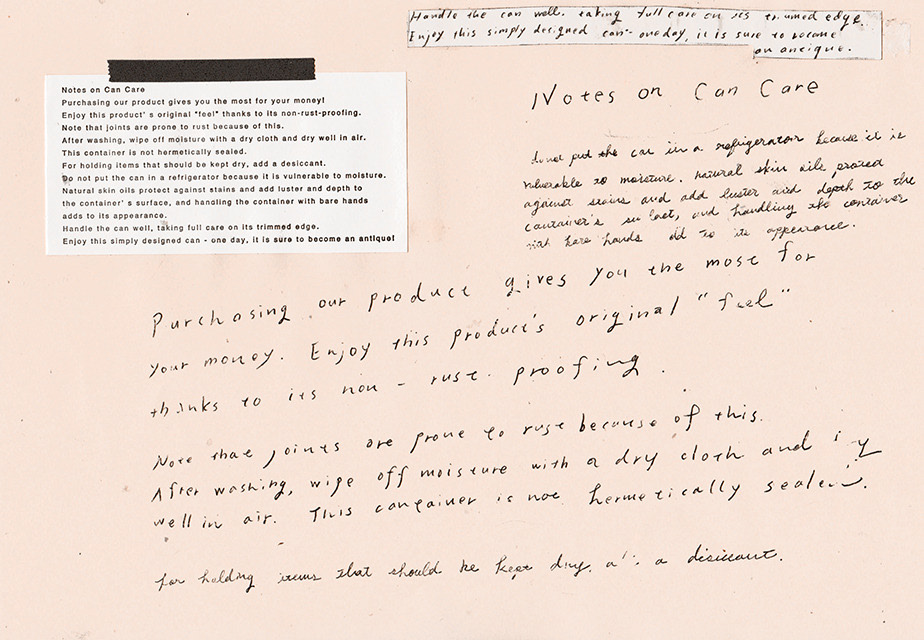 Handle the can well, taking full care on its trimmed edge.
Enjoy this simply designed can - one day, it is sure to become
an antique.
Notes on Can Care
Purchasing our product gives you the most for your money!
Enjoy this product's original "feel" thanks to its non-rust-proofing.
Note that joints are prone to rust because of this.
After washing, wipe off moisture with a dry cloth and dry well in air.
This container is not hermetically sealed.
For holding items that should be kept dry, add a desiccant.
Do not put the can in a refrigerator because it is vulnerable to moisture.
Natural skin oils protect against stains and add luster and depth to
the container's surface, and handling the container with bare hands
adds to its appearance.
Handle the can well, taking full care on its trimmed edge.
Enjoy this simply designed can - one day, it is sure to become an antique!
Notes on Can Care
do not put the can in a refrigerator because it is
vulnerable to moisture. natural skin oils protect
against stains and add luster and depth to the
container's and handling the container
with bare hands to its appearance.
Purchasing our product gives you the most for
your money. Enjoy this product's original "feel"
thanks to its non - rust - proofing.
Note that joints are prone to rust because of this.
After washing, wipe off moisture with a dry cloth and
well in air. This container is not hermetically sealed.
for holding items that should be kept dry, a